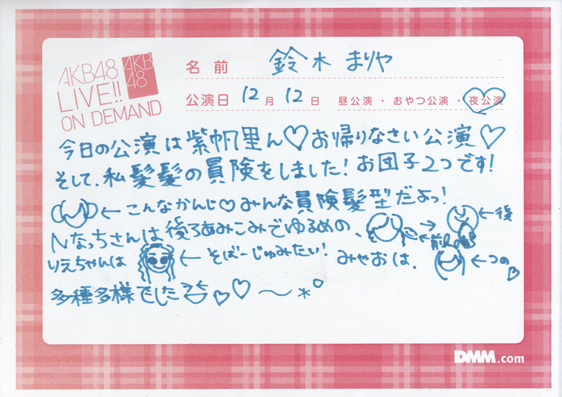 AKB48
LIVE!!
ON DEMAND
AKB
48
名前 鈴木まりや
公演日 12月12日 昼公演・おやつ公演・夜公演
今日の公演は紫帆里ん♡お帰りなさい公演♡
そして、私髪髪の冒険をしました！お団子2つです！
←こんなかんじ♡みんな冒険髪型だよっ！
Nなっちさんは後ろあみこみでゆるめの、 → ←後
←前
りえちゃんは ←そばーじゅみたい！ みゃおは、 ←つの
多種多様でした
DMM.com